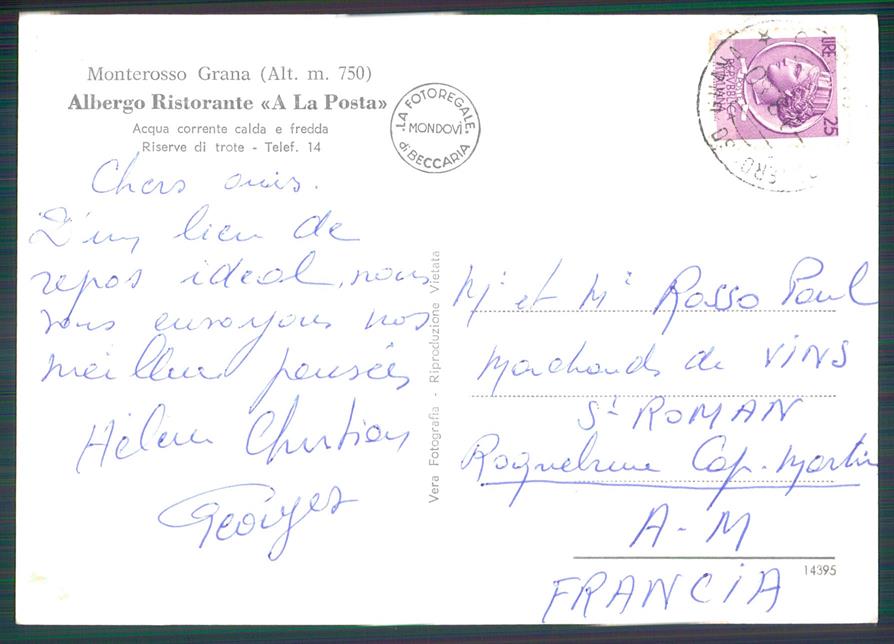 Monterosso Grana (Alt. m. 750)
Albergo Ristorante «A La Posta»
Acqua corrente calda e fredda
Riserve di trote - Telef. 14
LA FOTOREGALE
MONDOVÌ
di BECCARIA
LIRE 25
REPUBBLICA
ITALIANA
Chers amis.
D'un lieu de
repos idéal, nous
vous envoyons nos
meilleu pensées
Hélène Christian
Georges
Vera Fotografia - Riproduzione Vietata
Mr et Mr Rosso Paul
Marchands de VINS
St ROMAN
Roquebrune Cap-Martin
A-M
FRANCIA
14395